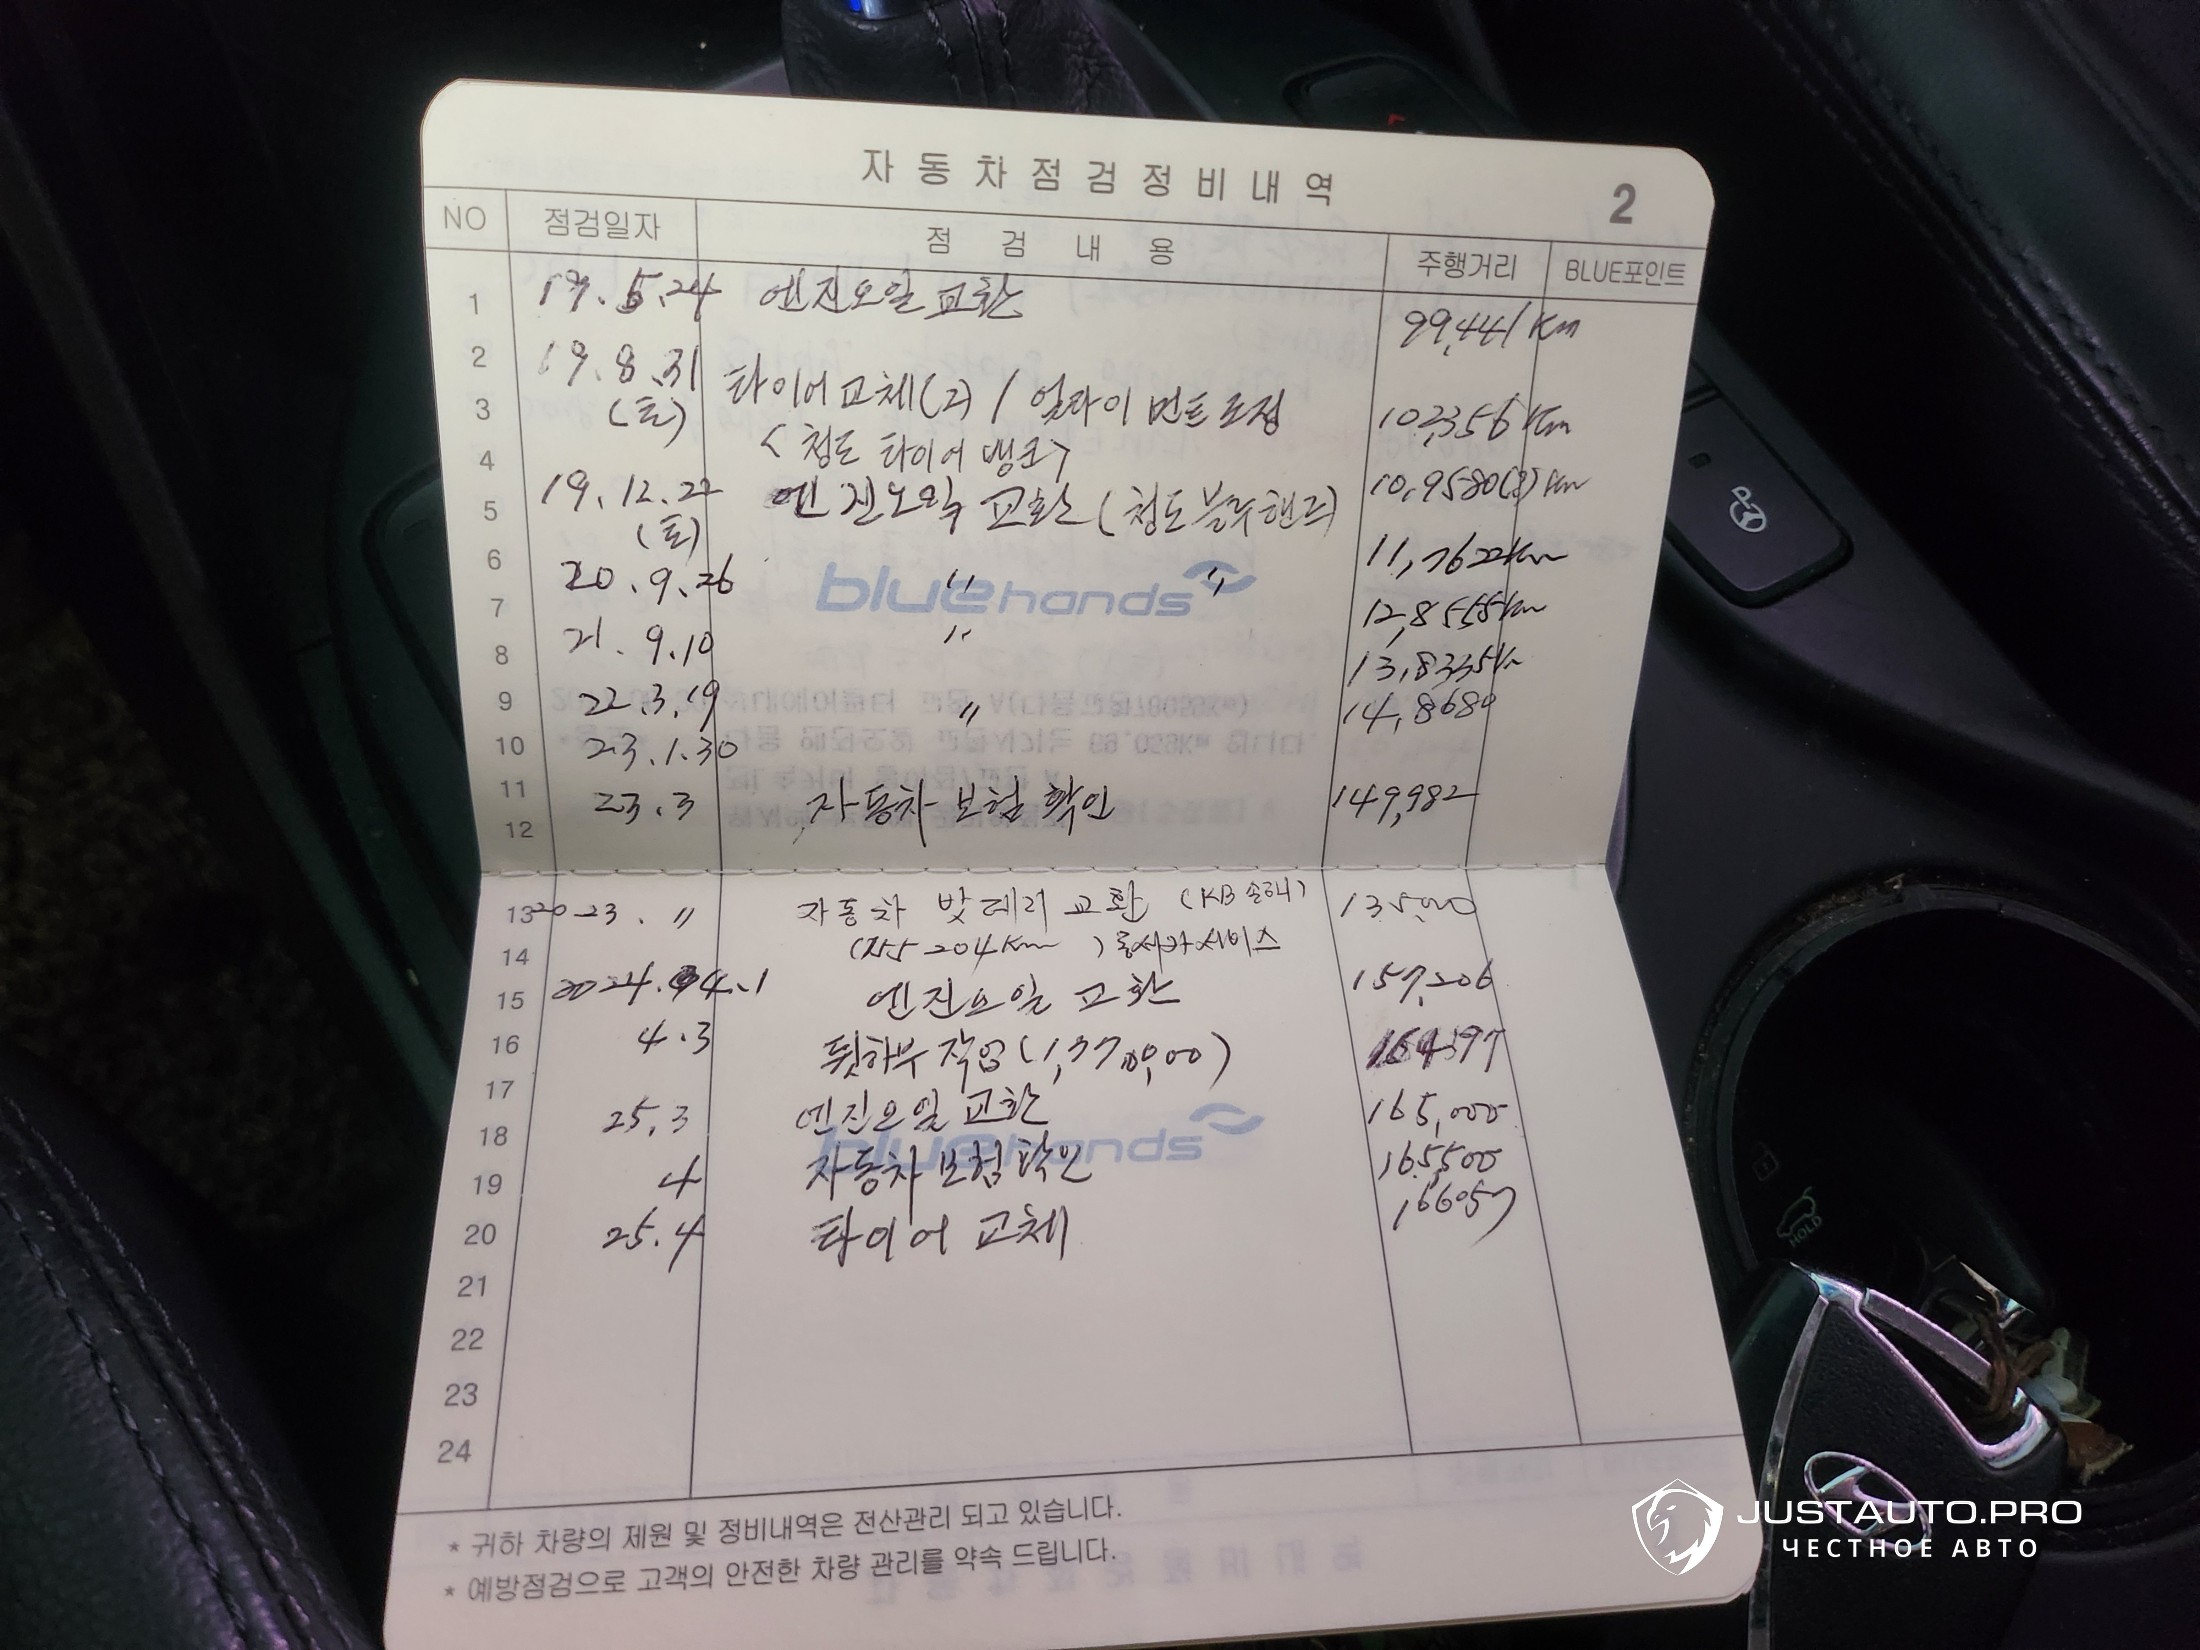 자동차점검정비내역 2
NO 점검일자 점검내용 주행거리 BLUE포인트
1 19.5.24 엔진오일교환 99,441Km
2 19.8.31 타이어교체(2) / 얼라이먼트조정 102,356Km
3 (토) <청도 타이어 뱅크>
4
5 19.12.22 엔진오일 교환 (청도블루핸즈) 10,9580(8)km
(토)
6 20.9.26 〃 〃 11,7622km
7
bluehands
8 21.9.10 〃 12,8555km
9 22.3.19 〃 13,8335km
10 23.1.30 14,8680
11 23.3 자동차보험확인 149,982
12
13 2023. 〃 자동차 밧데리교환 (KB손해) 135,000
14 (155204Km) 서비스
15 2024.04.1 엔진오일 교환 157,206
16 4.3 뒷하부작업(1,370,000) 164397
17
18 25.3 엔진오일교환 165,000
bluehands
19 4 자동차보험확인 165,500
20 25.4 타이어 교체 166057
21
22
23
24
* 귀하 차량의 제원 및 정비내역은 전산관리 되고 있습니다.
* 예방점검으로 고객의 안전한 차량 관리를 약속 드립니다.
HOLD
JUSTAUTO.PRO
ЧЕСТНОЕ АВТО